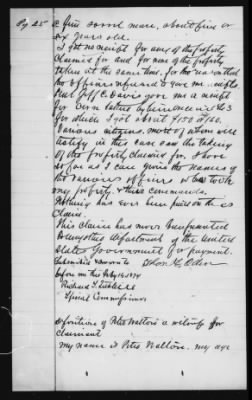 Pg 25
a fine sorrel mare, about five or
six years old.
I got no receipt for any of the property
claimed for and for none of the property
taken at the same time, for the reason that
the officers refused to give me receipts
But Jeff C Davis gave me a receipt
for corn taken by him in 1863
for which I got about $150 or 160.
Various citizens, most of whom will
testify in this case saw the taking
of the property claimed for. I have
as far as I can given the names of
the various officers who took
my property & their commands.
Nothing has ever been paid on this
claim.
This claim has never been presented
to any other department of the United
States Government for payment.
Subscribed & sworn to
before me this July 1874
Special Commissioner
deposition of Peter Walton a witness for
claimant
My name is Peter Walton, my age